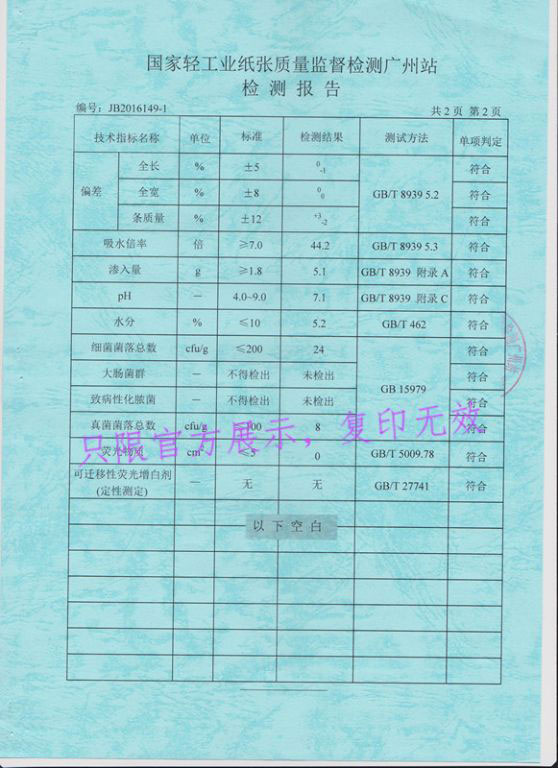 国家轻工业纸张质量监督检测广州站
检测报告
编号：JB2016149-1 共2页 第2页
技术指标名称 单位 标准 检测结果 测试方法 单项判定
偏差 全长 % ±5 0 -1 GB/T 8939 5.2 符合
全宽 % ±8 0 0 符合
条质量 % ±12 +3 -2 符合
吸水倍率 倍 ≥7.0 44.2 GB/T 8939 5.3 符合
渗入量 g ≥1.8 5.1 GB/T 8939 附录 A 符合
pH — 4.0~9.0 7.1 GB/T 8939 附录 C 符合
水分 % ≤10 5.2 GB/T 462 符合
细菌菌落总数 cfu/g ≤200 24 GB 15979 符合
大肠菌群 — 不得检出 未检出 符合
致病性化脓菌 — 不得检出 未检出 符合
真菌菌落总数 cfu/g ≤100 8 符合
荧光物质 cm² ≤5 0 GB/T 5009.78 符合
可迁移性荧光增白剂 — 无 无 GB/T 27741 符合
(定性测定)
只限官方展示，复印无效
以下空白